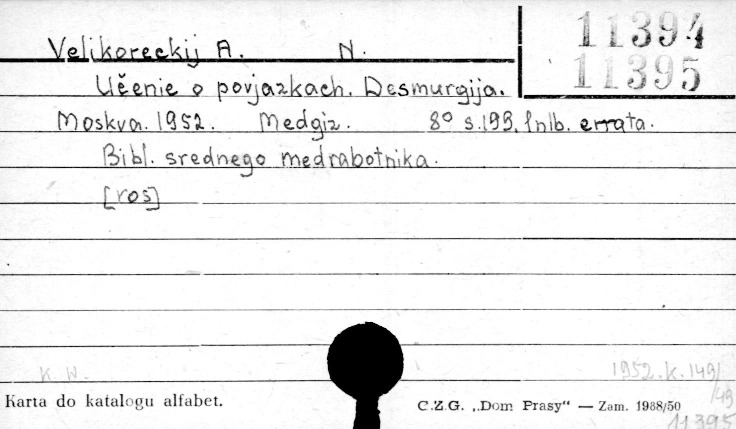 11394
11395
Velikoreckij A. N.
Učenie o povjazkach. Desmurgija.
Moskva. 1952. Medgiz. 8° s. 199, lnlb. errata.
Bibl. srednego medrabotnika.
[ros]
K. W.
1952. K. 149/
/49
Karta do katalogu alfabet.
C.Z.G. „Dom Prasy“ — Zam. 1988/50
11395